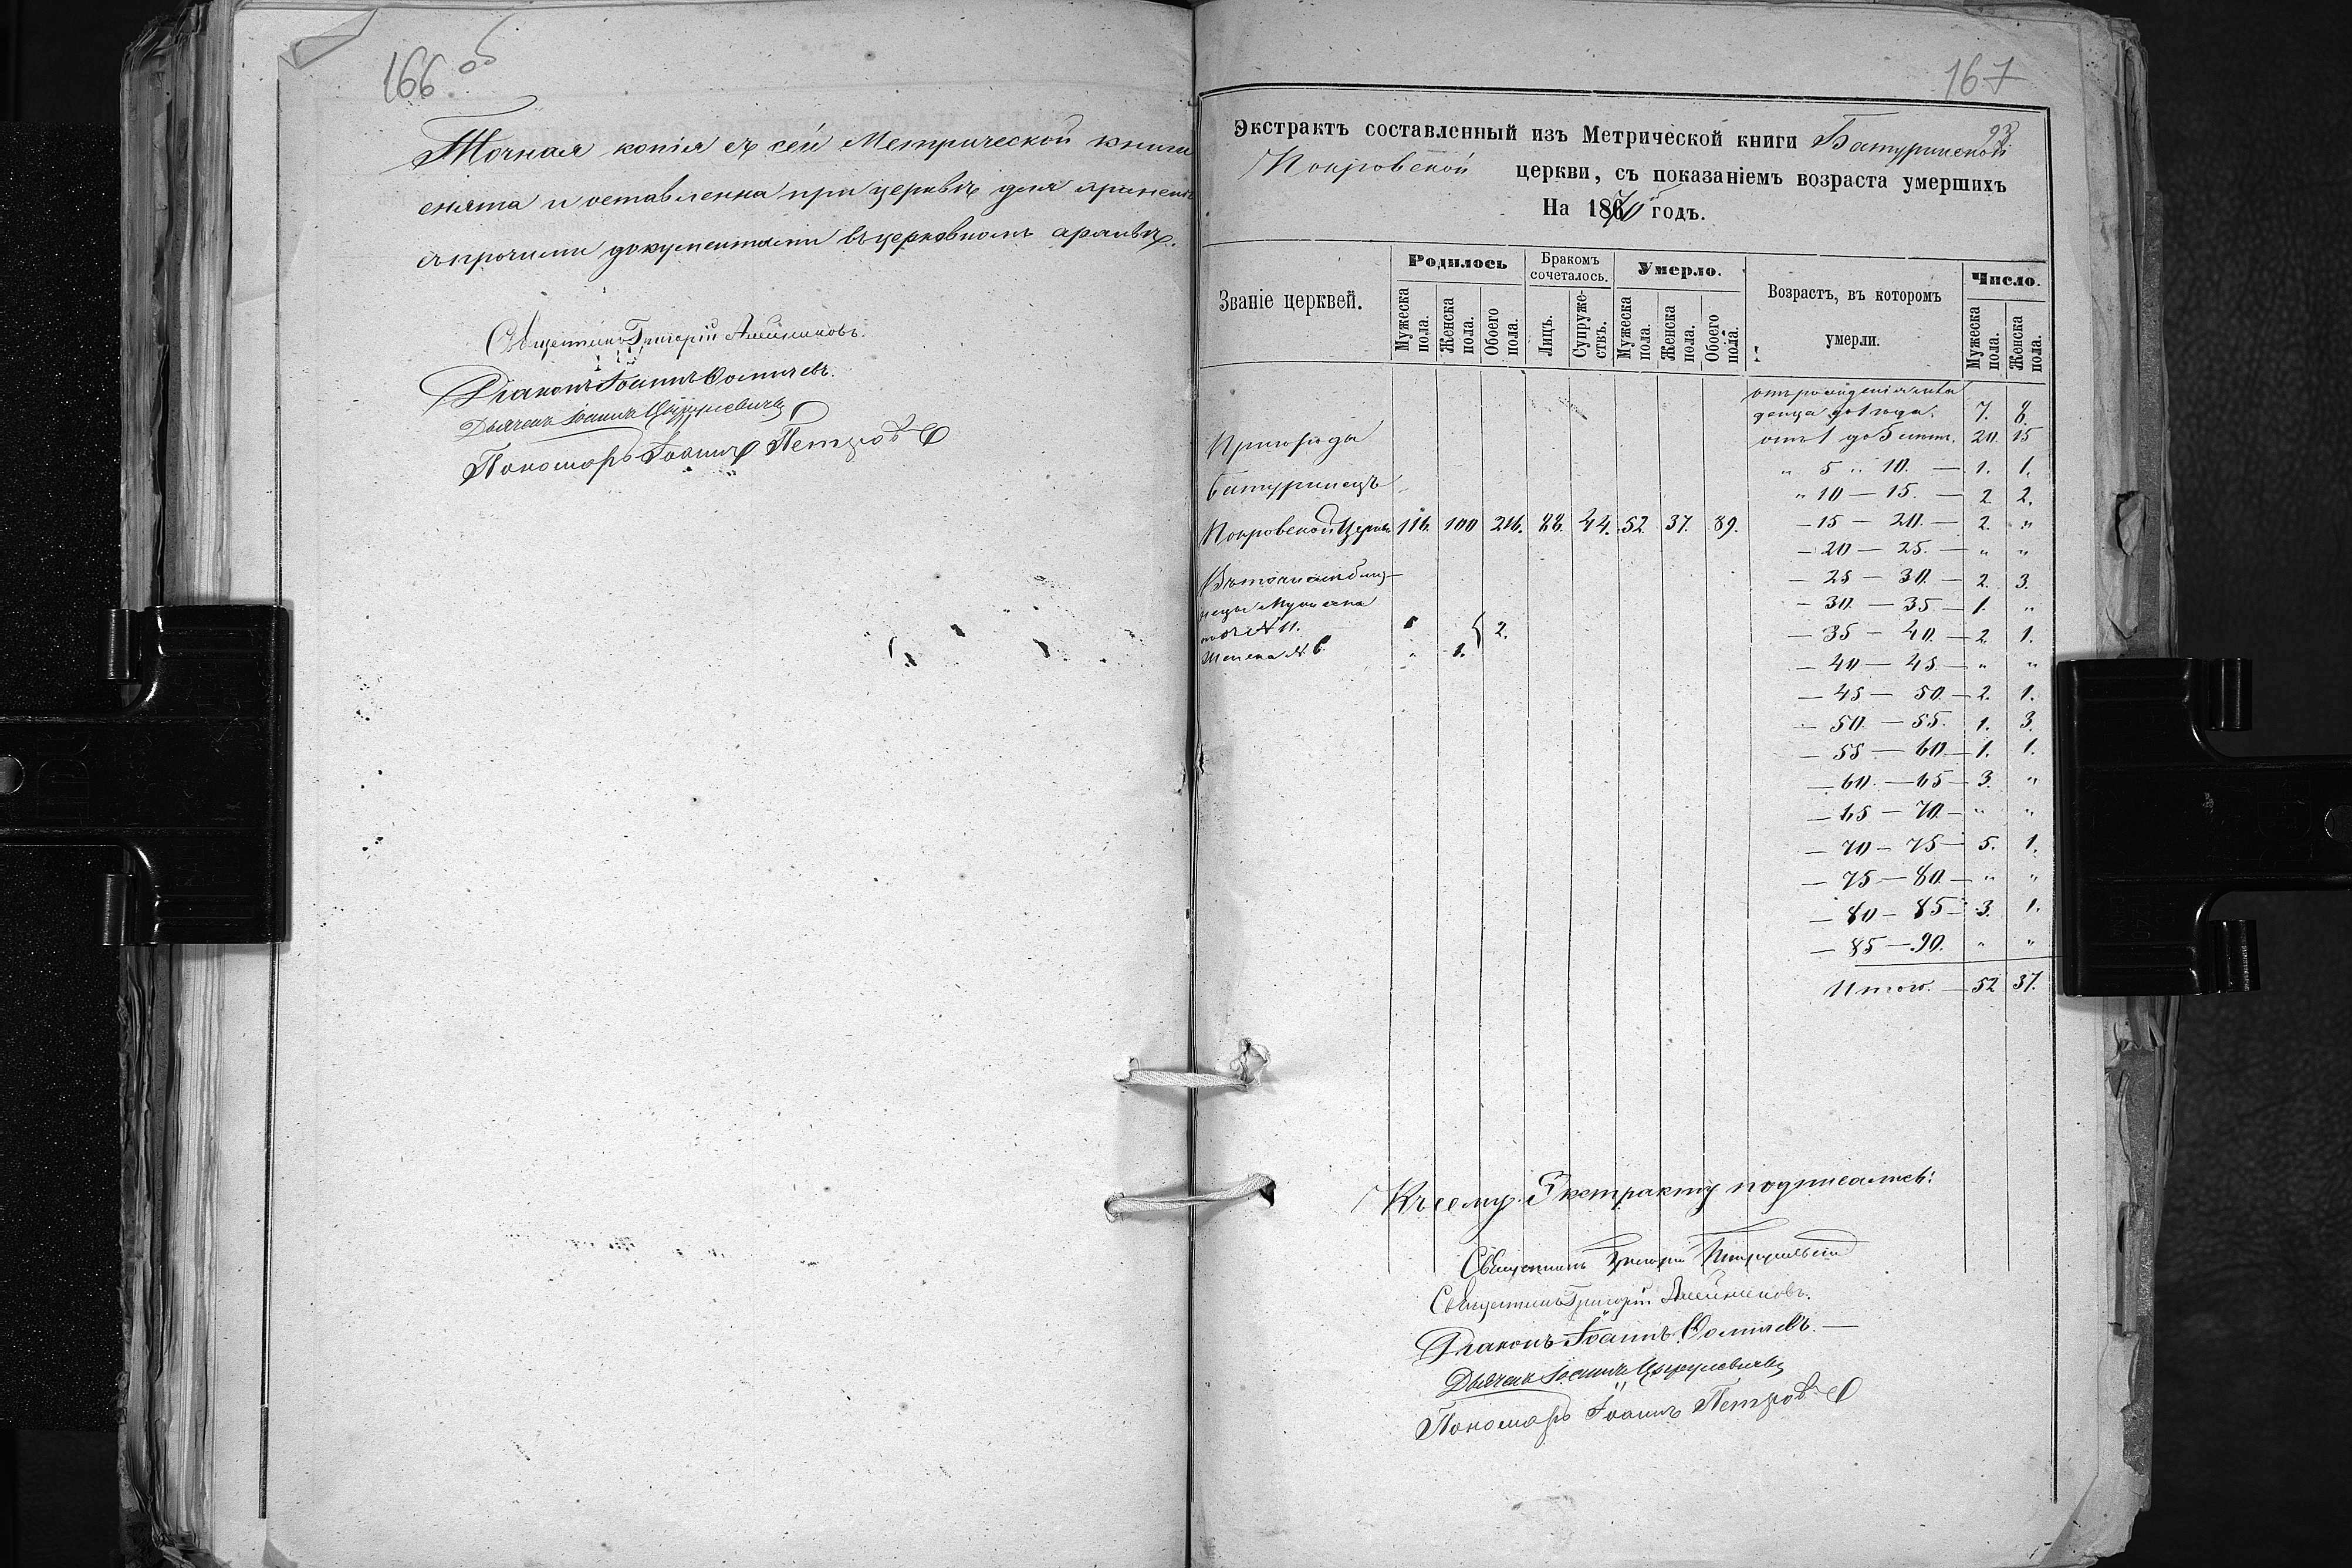 166 об
Точная копія съ сей Метрической книги
снята и оставленна при церквѣ для храненія
съ прочими документами въ церковномъ архивѣ.
Священникъ Григорій
Діаконъ Іоаннъ Ѳомичевъ.
Дьячекъ Іоаннъ
Пономарь Іоаннъ Петровъ
167
93
Экстрактъ составленный изъ Метрической книги Батуринской
Покровской церкви, съ показаніемъ возраста умершихъ
На 1870 годъ.
Званіе церквей.
Родилось
Мужеска пола.
Женска пола.
Обоего пола.
Бракомъ сочеталось.
Лицъ.
Супружествъ.
Умерло.
Мужеска пола.
Женска пола.
Обоего пола.
Возрастъ, въ которомъ умерли.
Число.
Мужеска пола.
Женска пола.
отъ рожденія мла
денца до 1 года. 7. 8.
Пригорода
отъ 1 до 5 лѣтъ. 20. 15
" 5 " 10. — 1. 1.
Батуринецъ
" 10 — 15. — 2. 2.
Покровской Церкви 116. 100 216. 88. 44. 52. 37. 89.
— 15 — 20. — 2. "
— 20 — 25. — " "
Въ томъ числѣ близ-
нецы Мужеска
подъ № 11.
Женска № 6. " 1. 2.
— 25 — 30. — 2. 3.
— 30. — 35. — 1. "
— 35 — 40. — 2. 1.
— 40 — 45. — " "
— 45 — 50. — 2. 1.
— 50. — 55. 1. 3.
— 55 — 60. — 1. 1.
— 60. — 65 — 3. "
— 65 — 70. — " "
— 70 — 75 — 5. 1.
— 75 — 80. — " "
— 80 — 85 — 3. 1.
— 85 — 90. " "
Итого. — 52 37.
Къ сему Экстракту подписались:
Священникъ Григорій
Священникъ Григорій
Діаконъ Іоаннъ Ѳомичевъ. —
Дьячекъ Іоаннъ
Пономарь Іоаннъ Петровъ